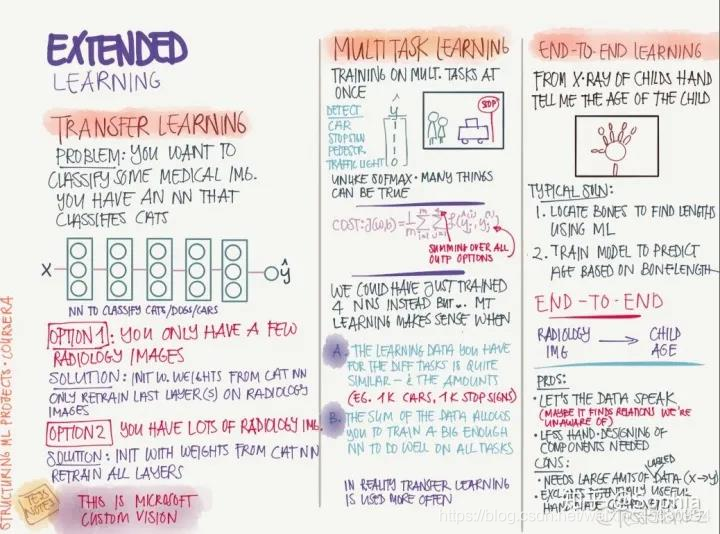 EXTENDED
LEARNING
TRANSFER LEARNING
PROBLEM: YOU WANT TO
CLASSIFY SOME MEDICAL IMG.
YOU HAVE AN NN THAT
CLASSIFIES CATS
X
ŷ
NN TO CLASSIFY CATS/DOGS/CARS
OPTION 1: YOU ONLY HAVE A FEW
RADIOLOGY IMAGES
SOLUTION: INIT W. WEIGHTS FROM CAT NN
ONLY RETRAIN LAST LAYER(S) ON RADIOLOGY
IMAGES
OPTION 2 YOU HAVE LOTS OF RADIOLOGY IMG.
SOLUTION: INIT WITH WEIGHTS FROM CAT NN
RETRAIN ALL LAYERS
THIS IS MICROSOFT
CUSTOM VISION
TESS NOTES
STRUCTURING ML PROJECTS · COURSERA
MULTI TASK LEARNING
TRAINING ON MULT. TASKS AT
ONCE
DETECT ŷ
CAR 1
STOPSIGN 1
PEDESTR. 1
TRAFFIC LIGHT 0
STOP
UNLIKE SOFMAX · MANY THINGS
CAN BE TRUE
SUMMING OVER ALL
OUTP OPTIONS
WE COULD HAVE JUST TRAINED
4 NNS INSTEAD BUT... MT
LEARNING MAKES SENSE WHEN
A. THE LEARNING DATA YOU HAVE
FOR THE DIFF TASKS IS QUITE
SIMILAR - & THE AMOUNTS
(EG. 1K CARS, 1K STOP SIGNS)
B. THE SUM OF THE DATA ALLOWS
YOU TO TRAIN A BIG ENOUGH
NN TO DO WELL ON ALL TASKS
IN REALITY TRANSFER LEARNING
IS USED MORE OFTEN
END-TO-END LEARNING
FROM X-RAY OF CHILDS HAND
TELL ME THE AGE OF THE CHILD
TYPICAL SOLN:
1. LOCATE BONES TO FIND LENGTHS
USING ML
2. TRAIN MODEL TO PREDICT
AGE BASED ON BONELENGTH
END-TO-END
RADIOLOGY → CHILD
IMG AGE
PROS:
• LET'S THE DATA SPEAK
(MAYBE IT FINDS RELATIONS WE'RE
UNAWARE OF)
• LESS HAND-DESIGNING OF
COMPONENTS NEEDED
CONS:
LABLED
• NEEDS LARGE AMTS OF DATA (X→Y)
• EXCLUDES POTENTIALLY USEFUL